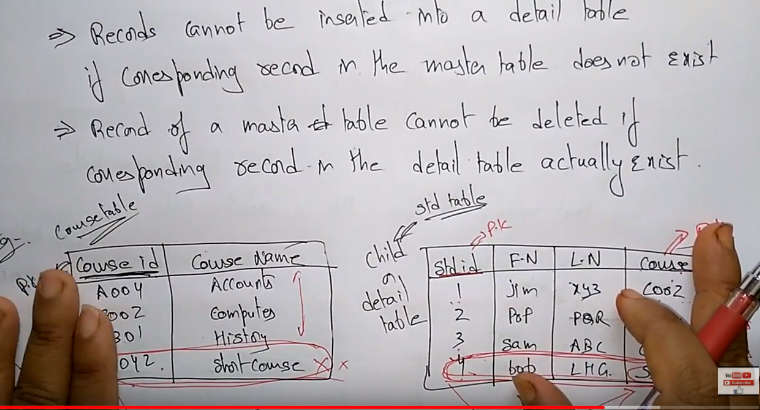 ⇒ Records cannot be inserted into a detail table
if corresponding record in the master table does not exist
⇒ Record of a master table cannot be deleted if
corresponding record in the detail table actually exist.
eg-
Course table
std table
P.K
Child
or
detail
table
P.K
Course id Course Name
A004 Accounts
C002 Computes
301 History
042. Short Course ××
Std id F.N L.N Course
1 jim xyz C002
2 Pop PQR
3 Sam ABC
4 bob LHG. S